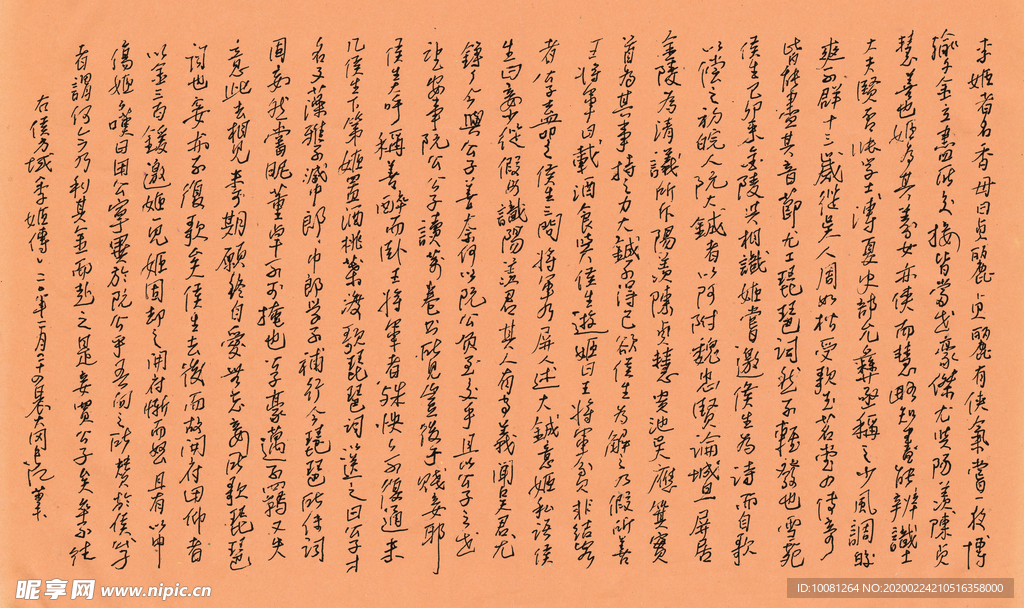 李姬者名香母曰貞麗貞麗有俠氣嘗一夜博
輸千金立盡所交接皆當世豪傑尤與陽羨陳貞
慧善也姬為其養女亦俠而慧略知書能辨識士
大夫賢否張學士溥夏吏部允彝亟稱之少風調皎
爽不群十三歲從吳人周如松受歌玉茗堂四傳奇
皆能盡其音節尤工琵琶詞然不輕發也雪苑
侯生己卯來金陵與相識姬嘗邀侯生為詩而自歌
以償之初皖人阮大鋮者以阿附魏忠賢論城旦屏居
金陵為清議所斥陽羨陳貞慧貴池吳應箕實
首為其事持之力大鋮不得已欲侯生為解之乃假所善
王將軍日載酒食與侯生遊姬曰王將軍貧非結客
者公子盍叩之侯生三問將軍乃屏人述大鋮意姬私語侯
生曰妾少從假母識陽羨君其人有高義聞吳君尤
錚錚今與公子善奈何以阮公負至交乎且以公子之世
望安事阮公公子讀萬卷書所見豈後于賤妾耶
侯生大呼稱善醉而臥王將軍者殊怏怏不復通未
幾侯生下第姬置酒桃葉渡歌琵琶詞送之曰公子才
名文藻雅不減中郎中郎學不補行今琵琶所傳詞
固妄然嘗昵董卓不可掩也公子豪邁不羈又失
意此去相見未可期願終自愛無忘妾所歌琵琶
詞也妾亦不復歌矣侯生去後而故開府田仰者
以金三百鍰邀姬一見姬固却之開府慚而怒且有以中
傷姬姬嘆曰田公寧異於阮公乎吾向之所贊於侯公子
者謂何今乃利其金而赴之是妾賣公子矣卒不往
右侯方域李姬傳
昵享网 www.nipic.cn
ID:10081264 NO:20200224210516358000